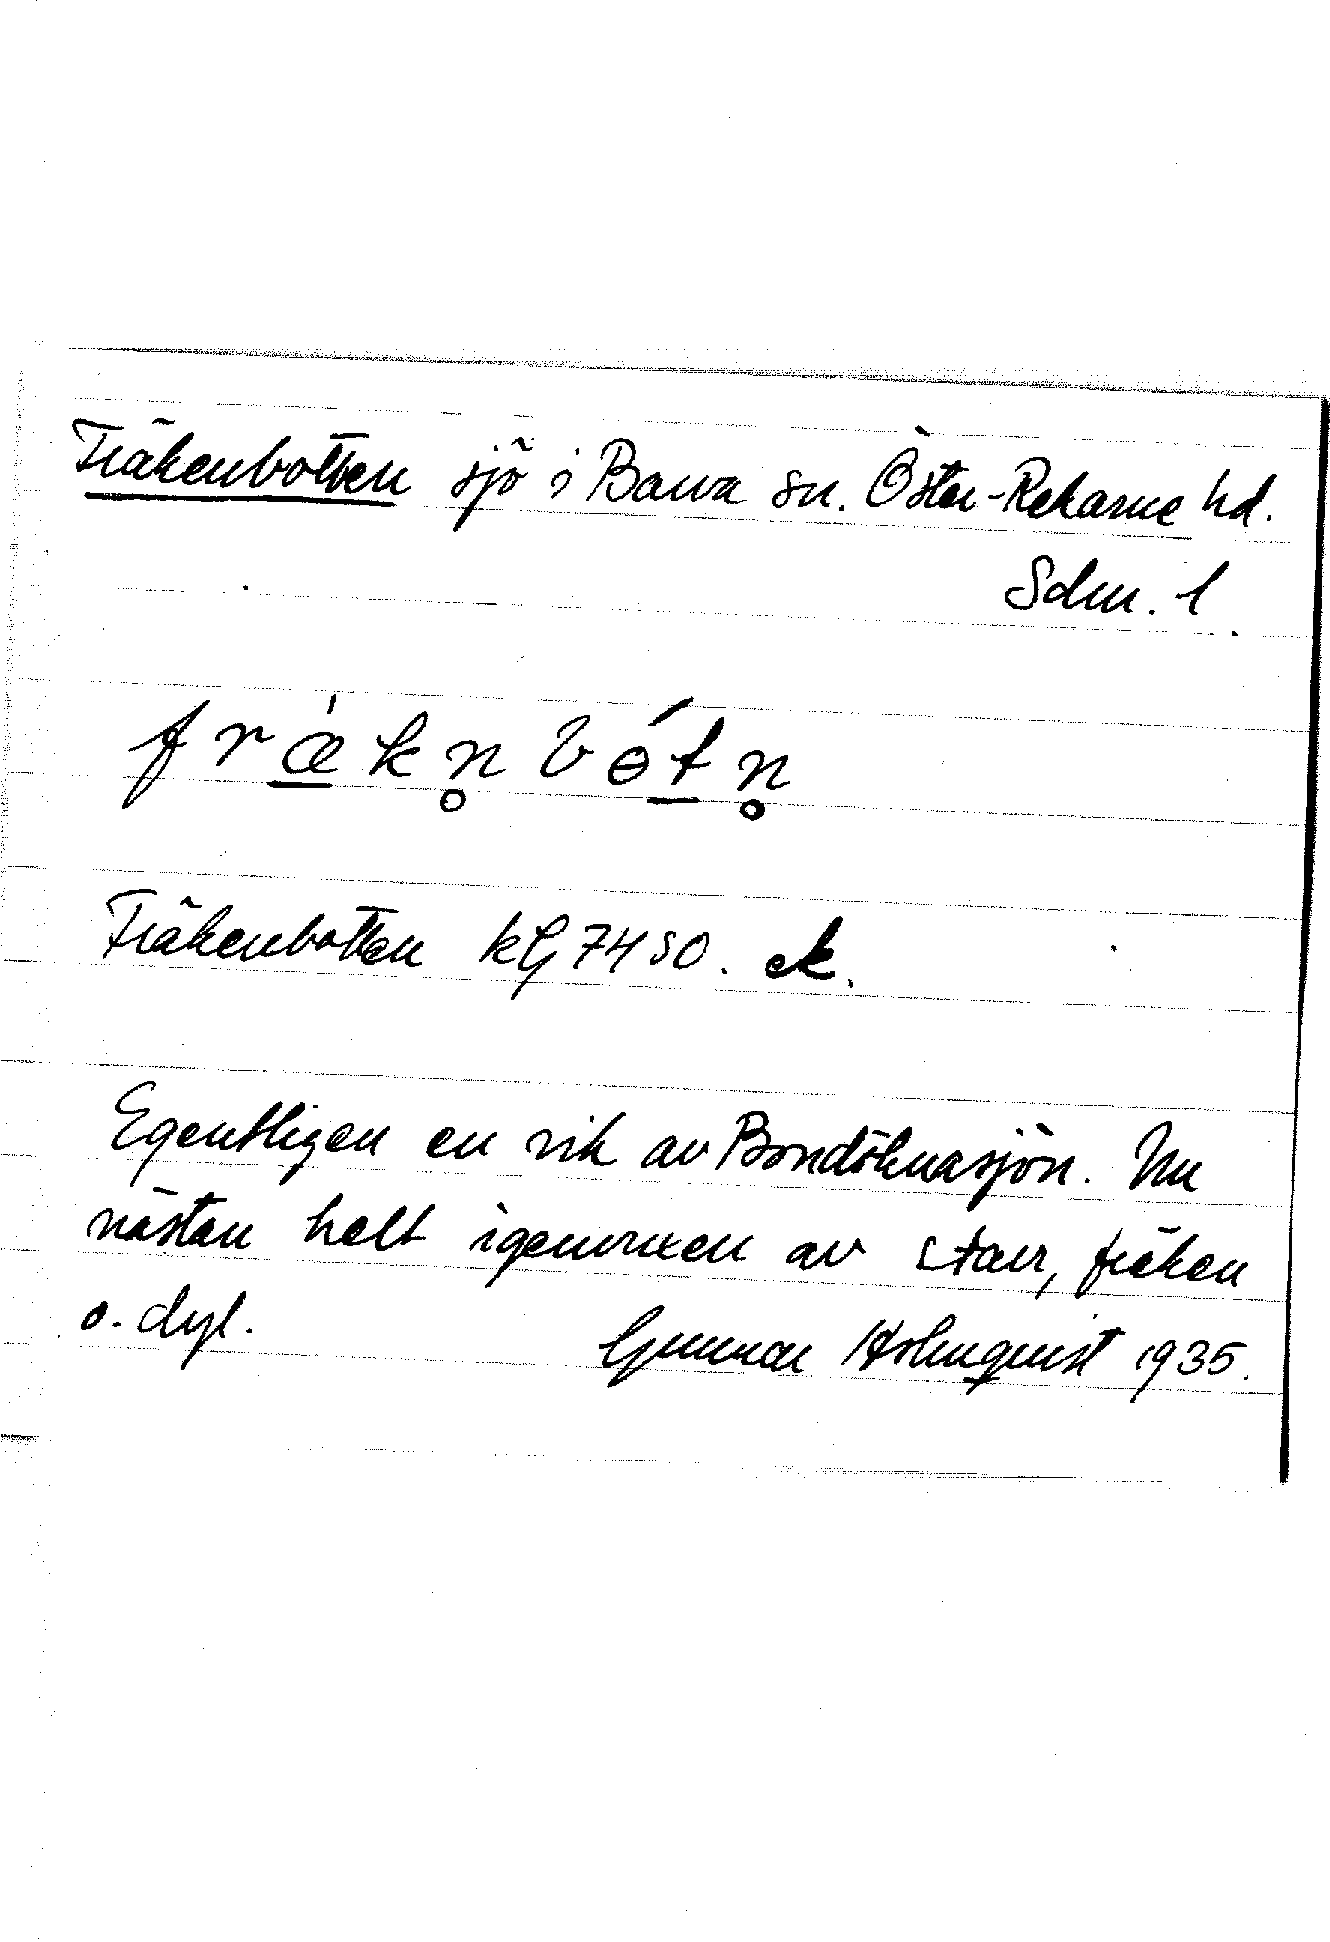 Fräkenbotten sjö i Barva sn. Öster-Rekarne hd.
Sdm. l.
fræ̀kn̥bɵ́tn̥
Fräkenbotten kG 7450. ek.
Egentligen en vik av Bondöknasjön. Nu
nästan helt igenvuxen av starr, fräken
o. dyl. Gunnar Holmquist 1935.